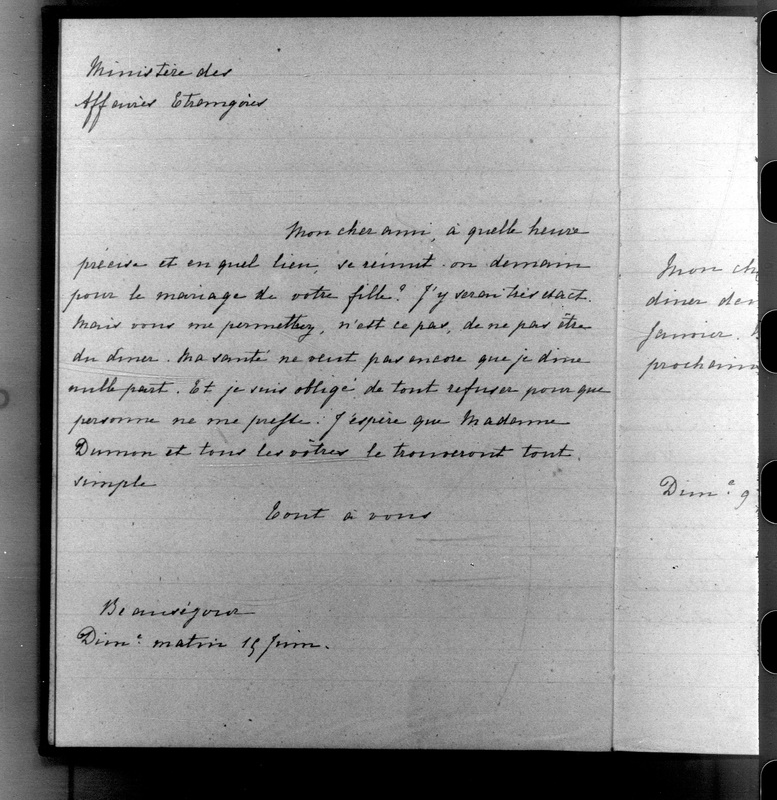 Ministère des
Affaires Etrangères
Mon cher ami, à quelle heure
précise et en quel lieu, se réunit-on demain
pour le mariage de votre fille? J'y serai très exact.
Mais vous me permettez, n'est ce pas, de ne pas être
du dîner. Ma santé ne veut pas encore que je dine
nulle part. Et je suis obligé de tout refuser pour que
personne ne me presse. J'espère que Madame
Dumon et tous les vôtres le trouveront tout
simple
Tout à vous
Beauséjour
Dim.e matin 15 Juin.
Mon ch
diner de
Janvier.
prochain
Dim.e 9